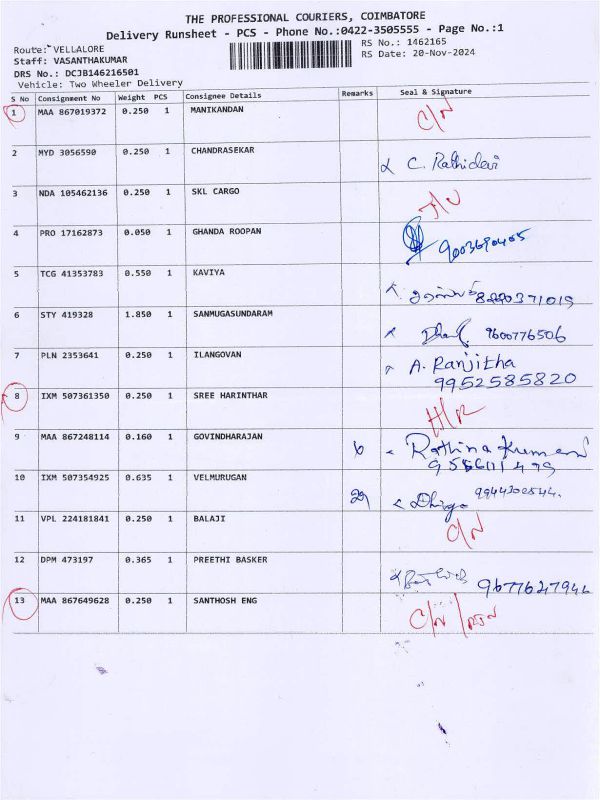 THE PROFESSIONAL COURIERS, COIMBATORE
Delivery Runsheet - PCS - Phone No.:0422-3505555 - Page No.:1
Route: VELLALORE
RS No.: 1462165
Staff: VASANTHAKUMAR
RS Date: 20-Nov-2024
DRS No.: DCJB146216501
Vehicle: Two Wheeler Delivery
S No Consignment No Weight PCS Consignee Details Remarks Seal & Signature
1 MAA 867019372 0.250 1 MANIKANDAN C/N
2 MYD 3056590 0.250 1 CHANDRASEKAR C. Rathidevi
3 NDA 105462136 0.250 1 SKL CARGO
4 PRO 17162873 0.050 1 GHANDA ROOPAN 9003690405
5 TCG 41353783 0.550 1 KAVIYA 8220371019
6 STY 419328 1.850 1 SANMUGASUNDARAM 9600776506
7 PLN 2353641 0.250 1 ILANGOVAN A. Ranjitha
9952585820
8 IXM 507361350 0.250 1 SREE HARINTHAR
9 MAA 867248114 0.160 1 GOVINDHARAJAN Rathina Kumar
10 IXM 507354925 0.635 1 VELMURUGAN 9944302544.
11 VPL 224181841 0.250 1 BALAJI C/N
12 DPM 473197 0.365 1 PREETHI BASKER 9677627946
13 MAA 867649628 0.250 1 SANTHOSH ENG C/N